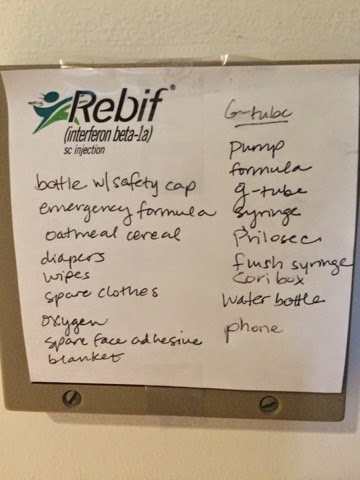 Rebif®
(interferon beta-1a)
sc injection
bottle w/safety cap
emergency formula
oatmeal cereal
diapers
wipes
spare clothes
oxygen
spare face adhesive
blanket
G-tube
pump
formula
g-tube
syringe
Prilosec
flush syringe
Cori box
water bottle
phone